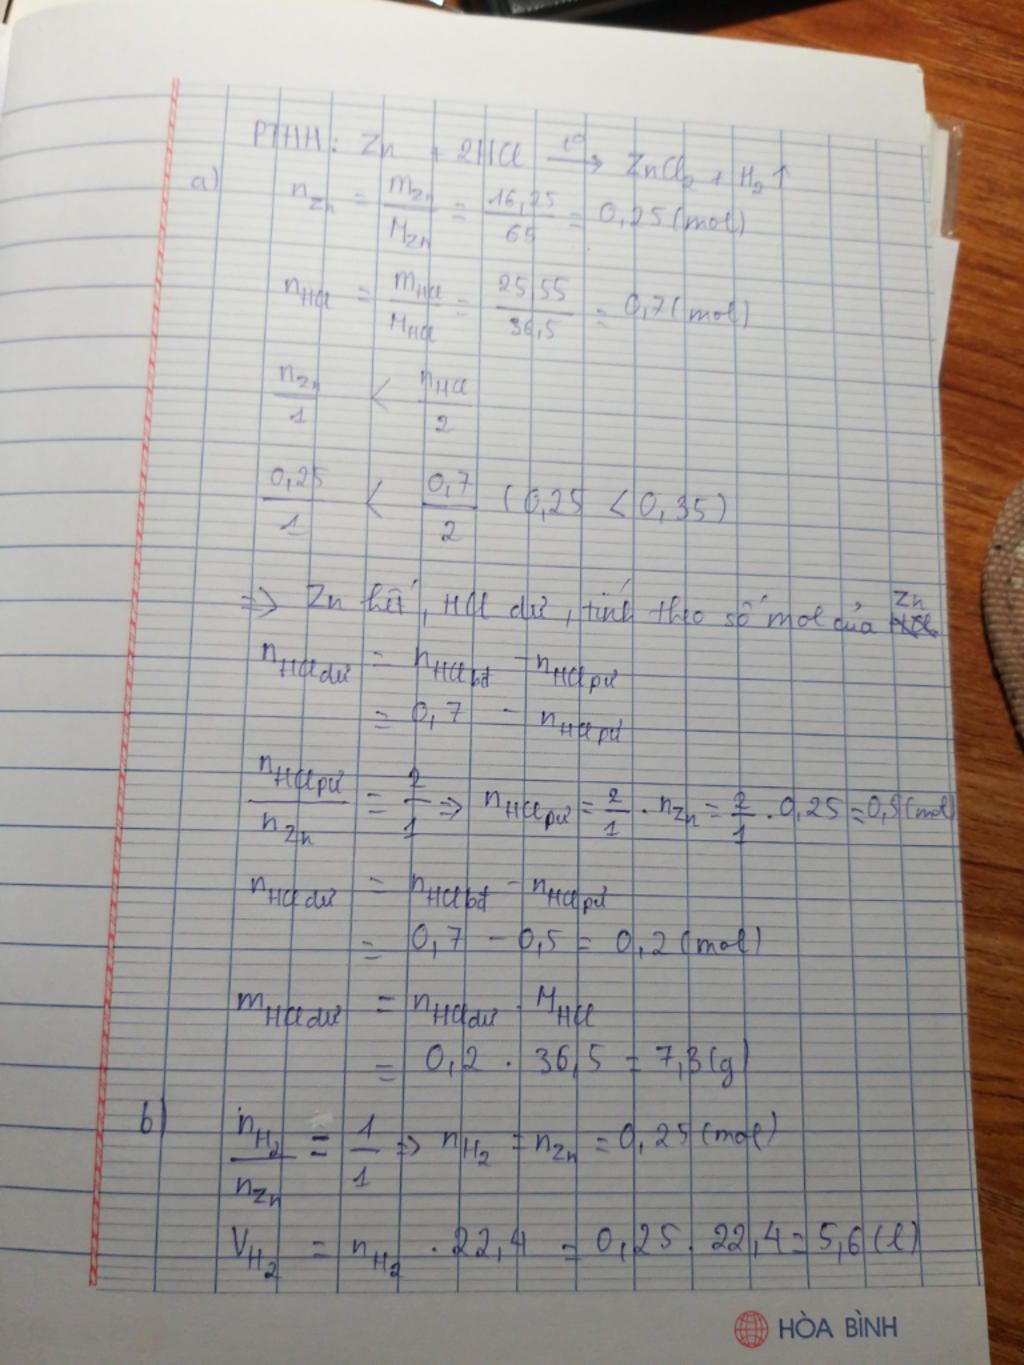 PTHH: Zn + 2HCl t° → ZnCl₂ + H₂ ↑
a) n_Zn = m_Zn / M_Zn = 16,25 / 65 = 0,25 (mol)
n_HCl = m_HCl / M_HCl = 25,55 / 36,5 = 0,7 (mol)
n_Zn / 1 < n_HCl / 2
0,25 / 1 < 0,7 / 2 (0,25 < 0,35)
=> Zn hết, HCl dư, tính theo số mol của Zn
n_HCl dư = n_HCl bđ - n_HCl pứ
= 0,7 - n_HCl pứ
n_HCl pứ / n_Zn = 2 / 1 => n_HCl pứ = 2/1 . n_Zn = 2/1 . 0,25 = 0,5 (mol)
n_HCl dư = n_HCl bđ - n_HCl pứ
= 0,7 - 0,5 = 0,2 (mol)
m_HCl dư = n_HCl dư . M_HCl
= 0,2 . 36,5 = 7,3 (g)
b) n_H₂ / n_Zn = 1 / 1 => n_H₂ = n_Zn = 0,25 (mol)
V_H₂ = n_H₂ . 22,4 = 0,25 . 22,4 = 5,6 (l)
HÒA BÌNH